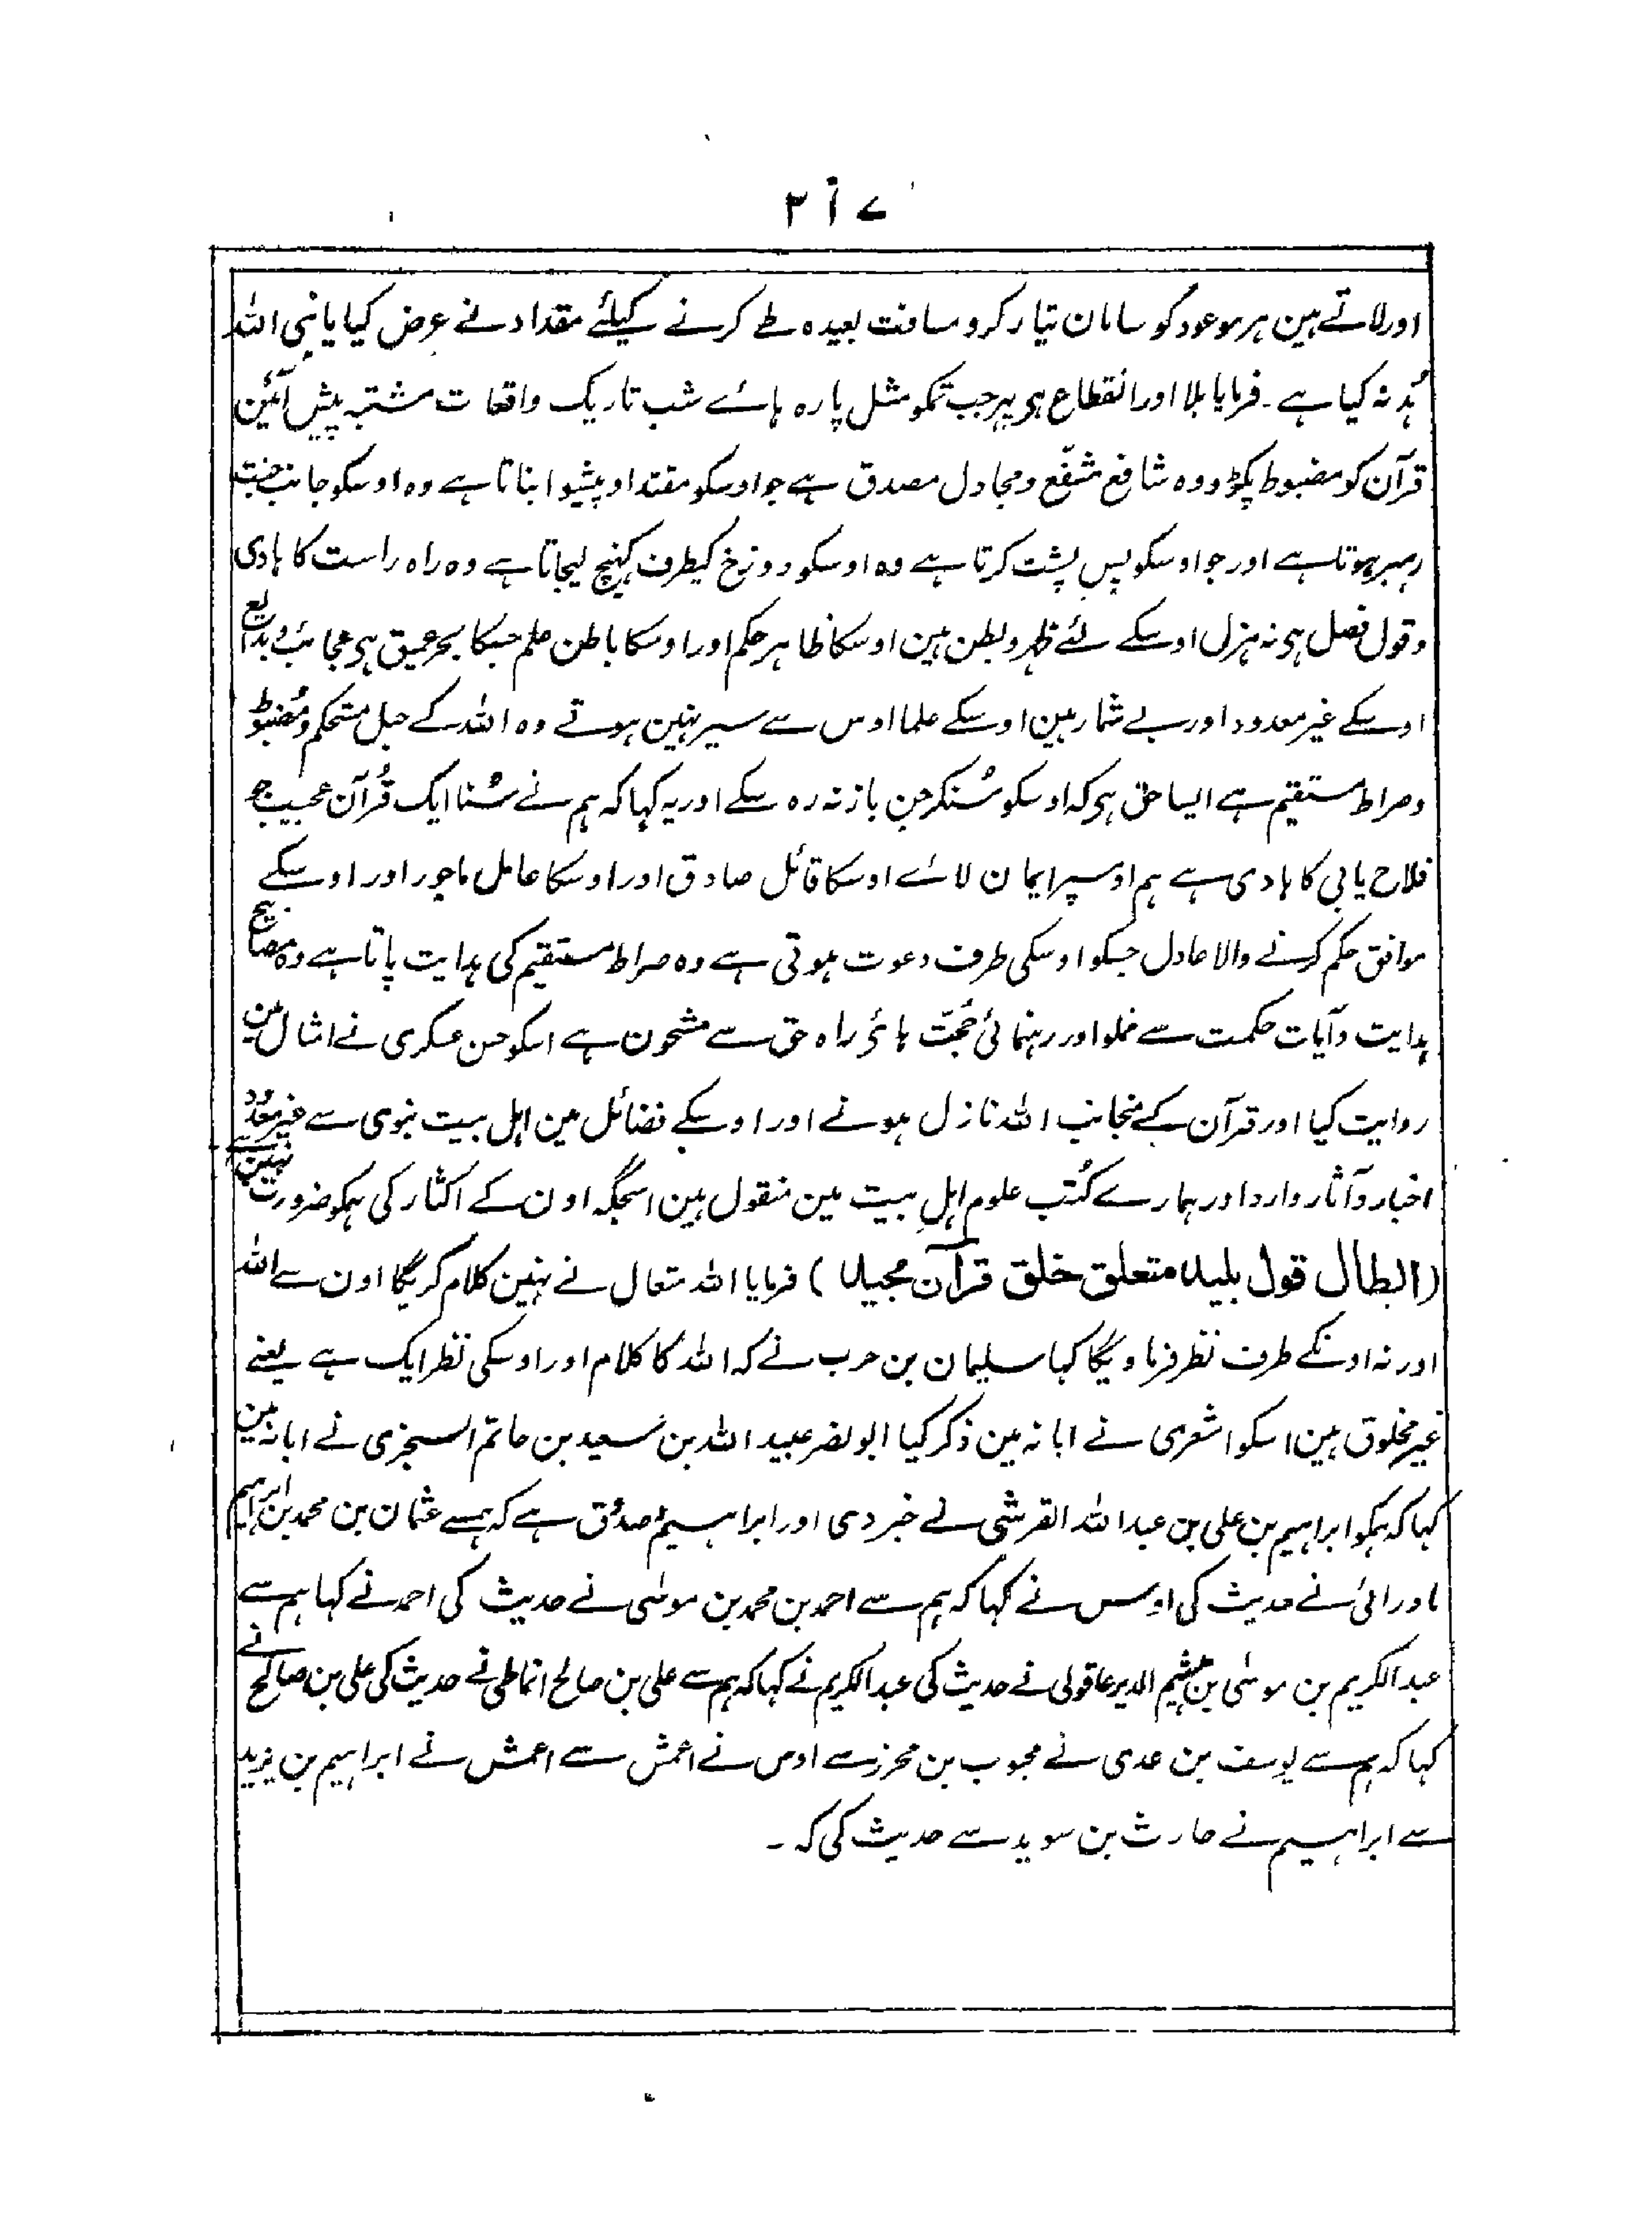 ۲۱۷
اور لاتے ہین ہر موعود کو سامان تیار کرو مسافت بعیدہ طے کرنے کیلئے مقداد نے عرض کیا یا نبی اللہ
ہُدنہ کیا ہے۔ فرمایا بلا اور انقطاع ہی پہر جب تمکو مثل پارہ ہائے شب تاریک واقعات مشتبہ پیش آئین
قرآن کو مضبوط پکڑو وہ شافع مشفّع و مجادل مصدق ہے جو اوسکو مقتدا و پیشوا بناتا ہے وہ اوسکو جانب جنت
رہبر ہوتا ہے اور جو اوسکو پس پشت کرتا ہے وہ اوسکو دوزخ کیطرف کہنچ لیجاتا ہے وہ راہ راست کا ہادی
و قول فصل ہی نہ ہزل اوسکے لئے ظہر و بطن ہین اوسکا ظاہر حکم اور اوسکا باطن علم جسکا بحر عمیق ہی عجائب و بدایع
اوسکے غیر معدود اور بے شمار ہین اوسکے علما اوس سے سیر نہین ہوتے وہ اللہ کے حبل مستحکم و مُضبوط
و صراط مستقیم ہے ایسا حق ہی کہ اوسکو سُنکر جن باز نہ رہ سکے اور یہ کہا کہ ہم نے سُنا ایک قُرآن عجیب جو
فلاح یابی کا ہادی ہے ہم اوسپر ایمان لائے اوسکا قائل صادق اور اوسکا عامل ماجور اور اوسکے
موافق حکم کرنے والا عادل جسکو اوسکی طرف دعوت ہوتی ہے وہ صراط مستقیم کی ہدایت پاتا ہے وہ مصابیح
ہدایت و آیات حکمت سے مملو اور رہنمائی حُجّت ہائی راہ حق سے مشحون ہے اسکو حسن عسکری نے امثال مین
روایت کیا اور قرآن کے منجانب اللہ نازل ہونے اور اوسکے فضائل مین اہل بیت نبوی سے غیر معدود
اخبار و آثار وارد اور ہمارے کُتب علوم اہلِ بیت مین منقول ہین اسجگہ اون کے اکثار کی ہمکو ضرورت نہین ہے
(ابطال قول بلید متعلق خلق قرآن مجید) فرمایا اللہ متعال نے نہین کلام کریگا اون سے اللہ
اور نہ اونکے طرف نظر فرماویگا کہا سلیمان بن حرب نے کہ اللہ کا کلام اور اوسکی نظر ایک ہے یعنے
غیر مخلوق ہین اسکو اشعری نے ابانہ مین ذکر کیا ابو نصر عبید اللہ بن سعید بن حاتم السجزی نے ابانہ مین
کہا کہ ہمکو ابراہیم بن علی بن عبد اللہ القرشی نے خبر دی اور ابراہیم اصدُق ہے کہ ہمسے عثمان بن محمد بن ابراہیم
مادرائی نے حدیث کی اوس نے کہا کہ ہم سے احمد بن محمد بن موسٰی نے حدیث کی احمد نے کہا ہم سے
عبد الکریم بن موسٰی بن ہیثم الدیر عاقولی نے حدیث کی عبد الکریم نے کہا کہ ہم سے علی بن صالح انماطی نے حدیث کی علی بن صالح نے
کہا کہ ہم سے یوسف بن عدی نے محبوب بن محرز سے اوس نے اعمش سے اعمش نے ابراہیم بن یزید
سے ابراہیم نے حارث بن سوید سے حدیث کی کہ ۔